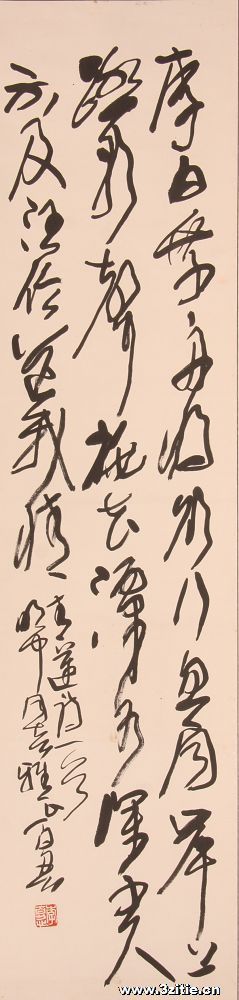 李白乘舟将欲行忽闻岸上
踏歌声桃花潭水深千尺
不及汪伦送我情
青莲诗一首
同志雅正
www.3zitie.cn